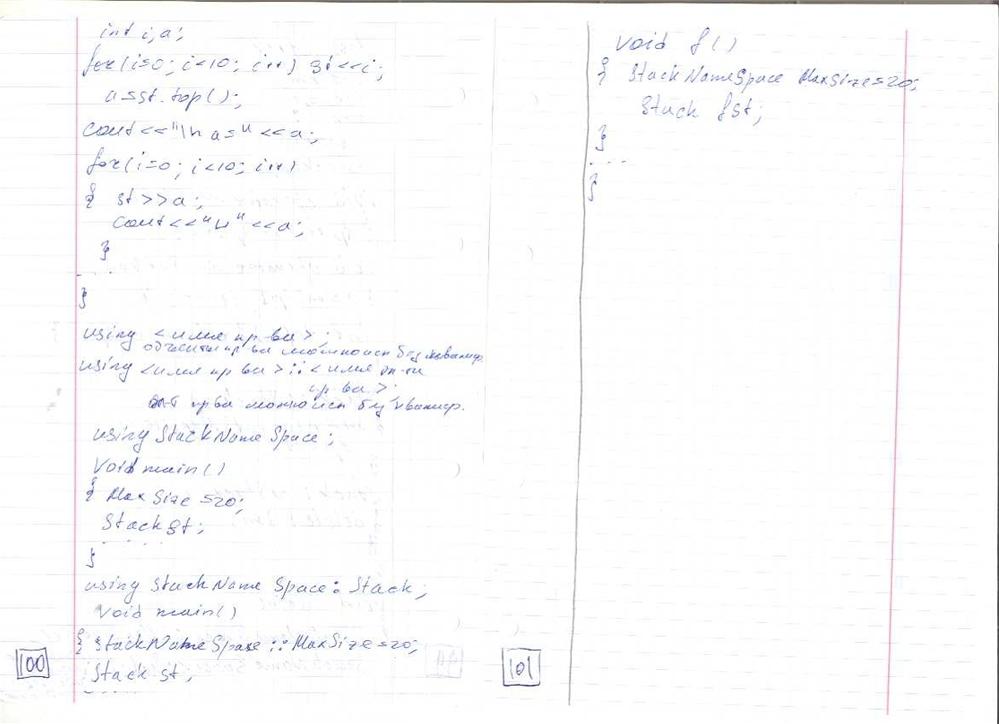 int i,a;
for(i=0; i<10; i++) st<<i;
a=st.top();
cout<<"\n a="<<a;
for(i=0; i<10; i++)
{ st>>a;
cout<<"␣"<<a;
}
. . . .
}
using <имя пр-ва>;
объекты пр-ва можно исп без квалиф.
using <имя пр-ва>::<имя эл-та
пр-ва>;
эл-т пр-ва можно исп без квалиф.
using StackNameSpace;
void main()
{ MaxSize=20;
Stack st;
. . . . .
}
using StackNameSpace: Stack;
void main()
{ StackNameSpace::MaxSize=20;
Stack st;
. . . . .
100
void f()
{ StackNameSpace MaxSize=20;
Stack fst;
}
. . . .
}
101